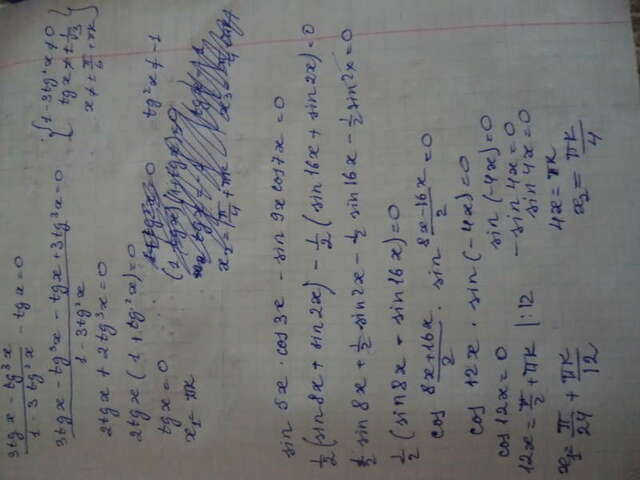 3tgx - tg³x / 1 - 3tg²x - tgx = 0
{ 1 - 3tg²x ≠ 0
tgx ≠ ± 1/√3
x ≠ ± π/6 + πk }
3tgx - tg³x - tgx + 3tg³x = 0 / 1 - 3tg²x
2tgx + 2tg³x = 0
2tgx (1 + tg²x) = 0
tgx = 0
tg²x ≠ -1
x₁ = πk
sin 5x · cos 3x - sin 9x cos 7x = 0
½ (sin 8x + sin 2x) - ½ (sin 16x + sin 2x) = 0
½ sin 8x + ½ sin 2x - ½ sin 16x - ½ sin 2x = 0
½ (sin 8x - sin 16x) = 0
cos 8x+16x / 2 · sin 8x-16x / 2 = 0
cos 12x · sin (-4x) = 0
cos 12x = 0
sin (-4x) = 0
12x = π/2 + πk |:12
- sin 4x = 0
sin 4x = 0
4x = πk
x₁ = π/24 + πk/12
x₂ = πk/4